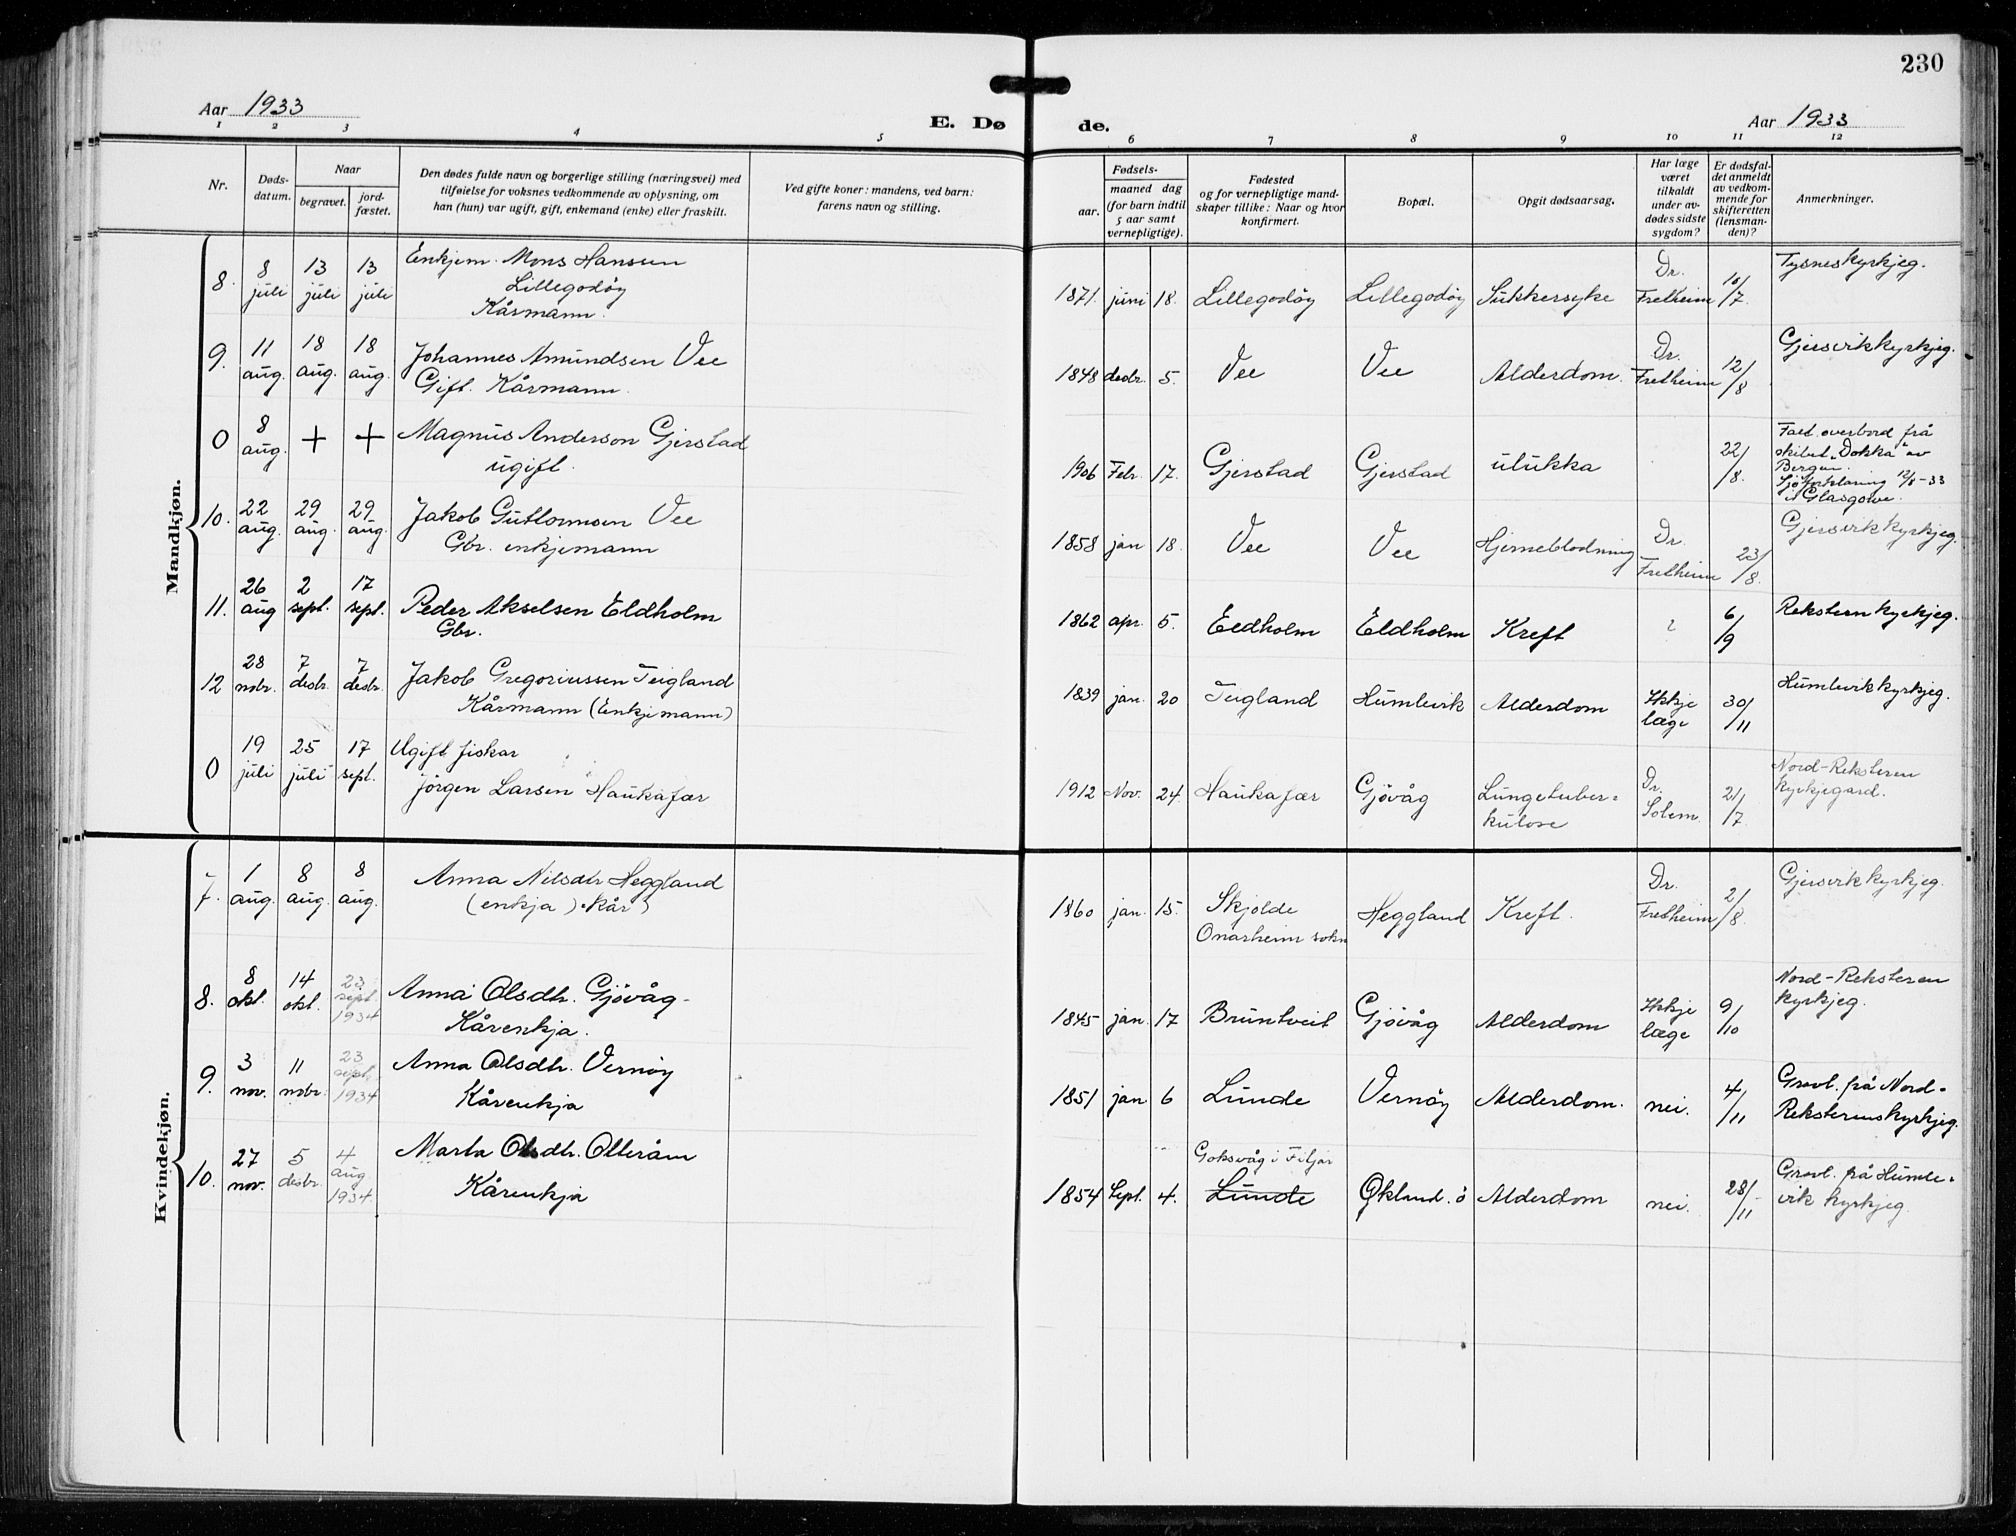 230
Aar 1933
E. Døde.
Aar 1933
1 2 3 4 5 6 7 8 9 10 11 12
Nr.
Døds-
datum.
Naar
begravet.
jord-
fæstet.
Den dødes fulde navn og borgerlige stilling (næringsvei) med
tilføielse for voksnes vedkommende av oplysning, om
han (hun) var ugift, gift, enkemand (enke) eller fraskilt.
Ved gifte koner: mandens, ved barn:
farens navn og stilling.
Fødsels-
aar.
maaned dag
(for barn indtil
5 aar samt
vernepligtige).
Fødested
og for vernepligtige mand-
skaper tillike: Naar og hvor
konfirmert.
Bopæl.
Opgit dødsaarsag.
Har læge
været
tilkaldt
under av-
dødes sidste
sygdom?
Er dødsfal-
det anmeldt
av vedkom-
mende for
skifteretten
(lensman-
den)?
Anmerkninger.
Mandkjøn.
8. 8 juli 13 juli 13 juli Enkjem. Mons Hanssen
Lillegodøy
Kårmann.
1871. juni 18. Lillegodøy Lillegodøy Sukkersyke Dr. Fretheim 10/7. Tysneskyrkjeg.
9. 11 aug. 18 aug. 18 aug. Johannes Amundsen Vee
Gift. Kårmann.
1848 desbr. 5. Vee Vee Alderdom. Dr. Fretheim 12/8 Gjersvikkyrkjeg.
0 8 aug. + + Magnus Anderson Gjerstad
ugift.
1906 Febr. 17. Gjerstad Gjerstad ulukka 22/8. Fall overbord frå
skibet "Dokka" av
Bergen.
Sjøforklaring 12/8-33
i Glasgow.
10. 22 aug. 29 aug. 29 aug. Jakob Guttormsen Vee
Gbr. enkjemann
1858 jan 18. Vee Vee Hjerneblodning Dr. Fretheim 23/8. Gjersvikkyrkjeg.
11. 26 aug 2 sept. 17 sept. Peder Akselsen Eldholm
Gbr.
1862 apr. 5. Eldholm Eldholm Kreft ? 6/9 Reksternkyrkjeg.
12 28 nobr. 7 desbr. 7 desbr. Jakob Gregoriussen Teigland
Kårmann (Enkjemann)
1839 jan. 20 Teigland Humlevik Alderdom Ikkje læge 30/11 Humlevikkyrkjeg.
0 19 juli 25 juli 17 sept. Ugift fiskar
Jörgen Larsen Haukafær
1912 Nov. 24. Haukafær Gjövåg Lungetuber=
kulose Dr. Solem. 21/7. Nord-Reksteren
Kyrkjegard.
Kvindekjøn.
7. 1 aug. 8 aug. 8 aug. Anna Nilsdtr Heggland
(enkja) kår)
1860 jan. 15. Skjolde
Onarheim sokn Heggland Kreft. Dr. Fretheim 2/8. Gjersvikkyrkjeg.
8. 8 okt. 14 okt. 23 sept. 1934 Anna Olsdtr. Gjövåg-
Kårenkja.
1845 jan. 17 Bruntveit Gjövåg Alderdom Ikkje læge 9/10 Nord-Reksteren
Kyrkjeg.
9. 3 nov. 11 nobr. 23 sept. 1934 Anna Olsdtr. Vernøy
Kårenkja
1851 jan 6 Lunde Vernøy Alderdom. nei. 4/11 Gravl. frå Nord-
Reksterenskyrkjeg.
10. 27 nov. 5 desbr. 4 aug 1934. Marta Olsdtr. Otteråm
Kårenkja
1854 Sept. 4. Goksvåg i Fitjar
Lunde Økland. ö Alderdom nei. 28/11 Gravl. frå Humle-
vik kyrkjeg.